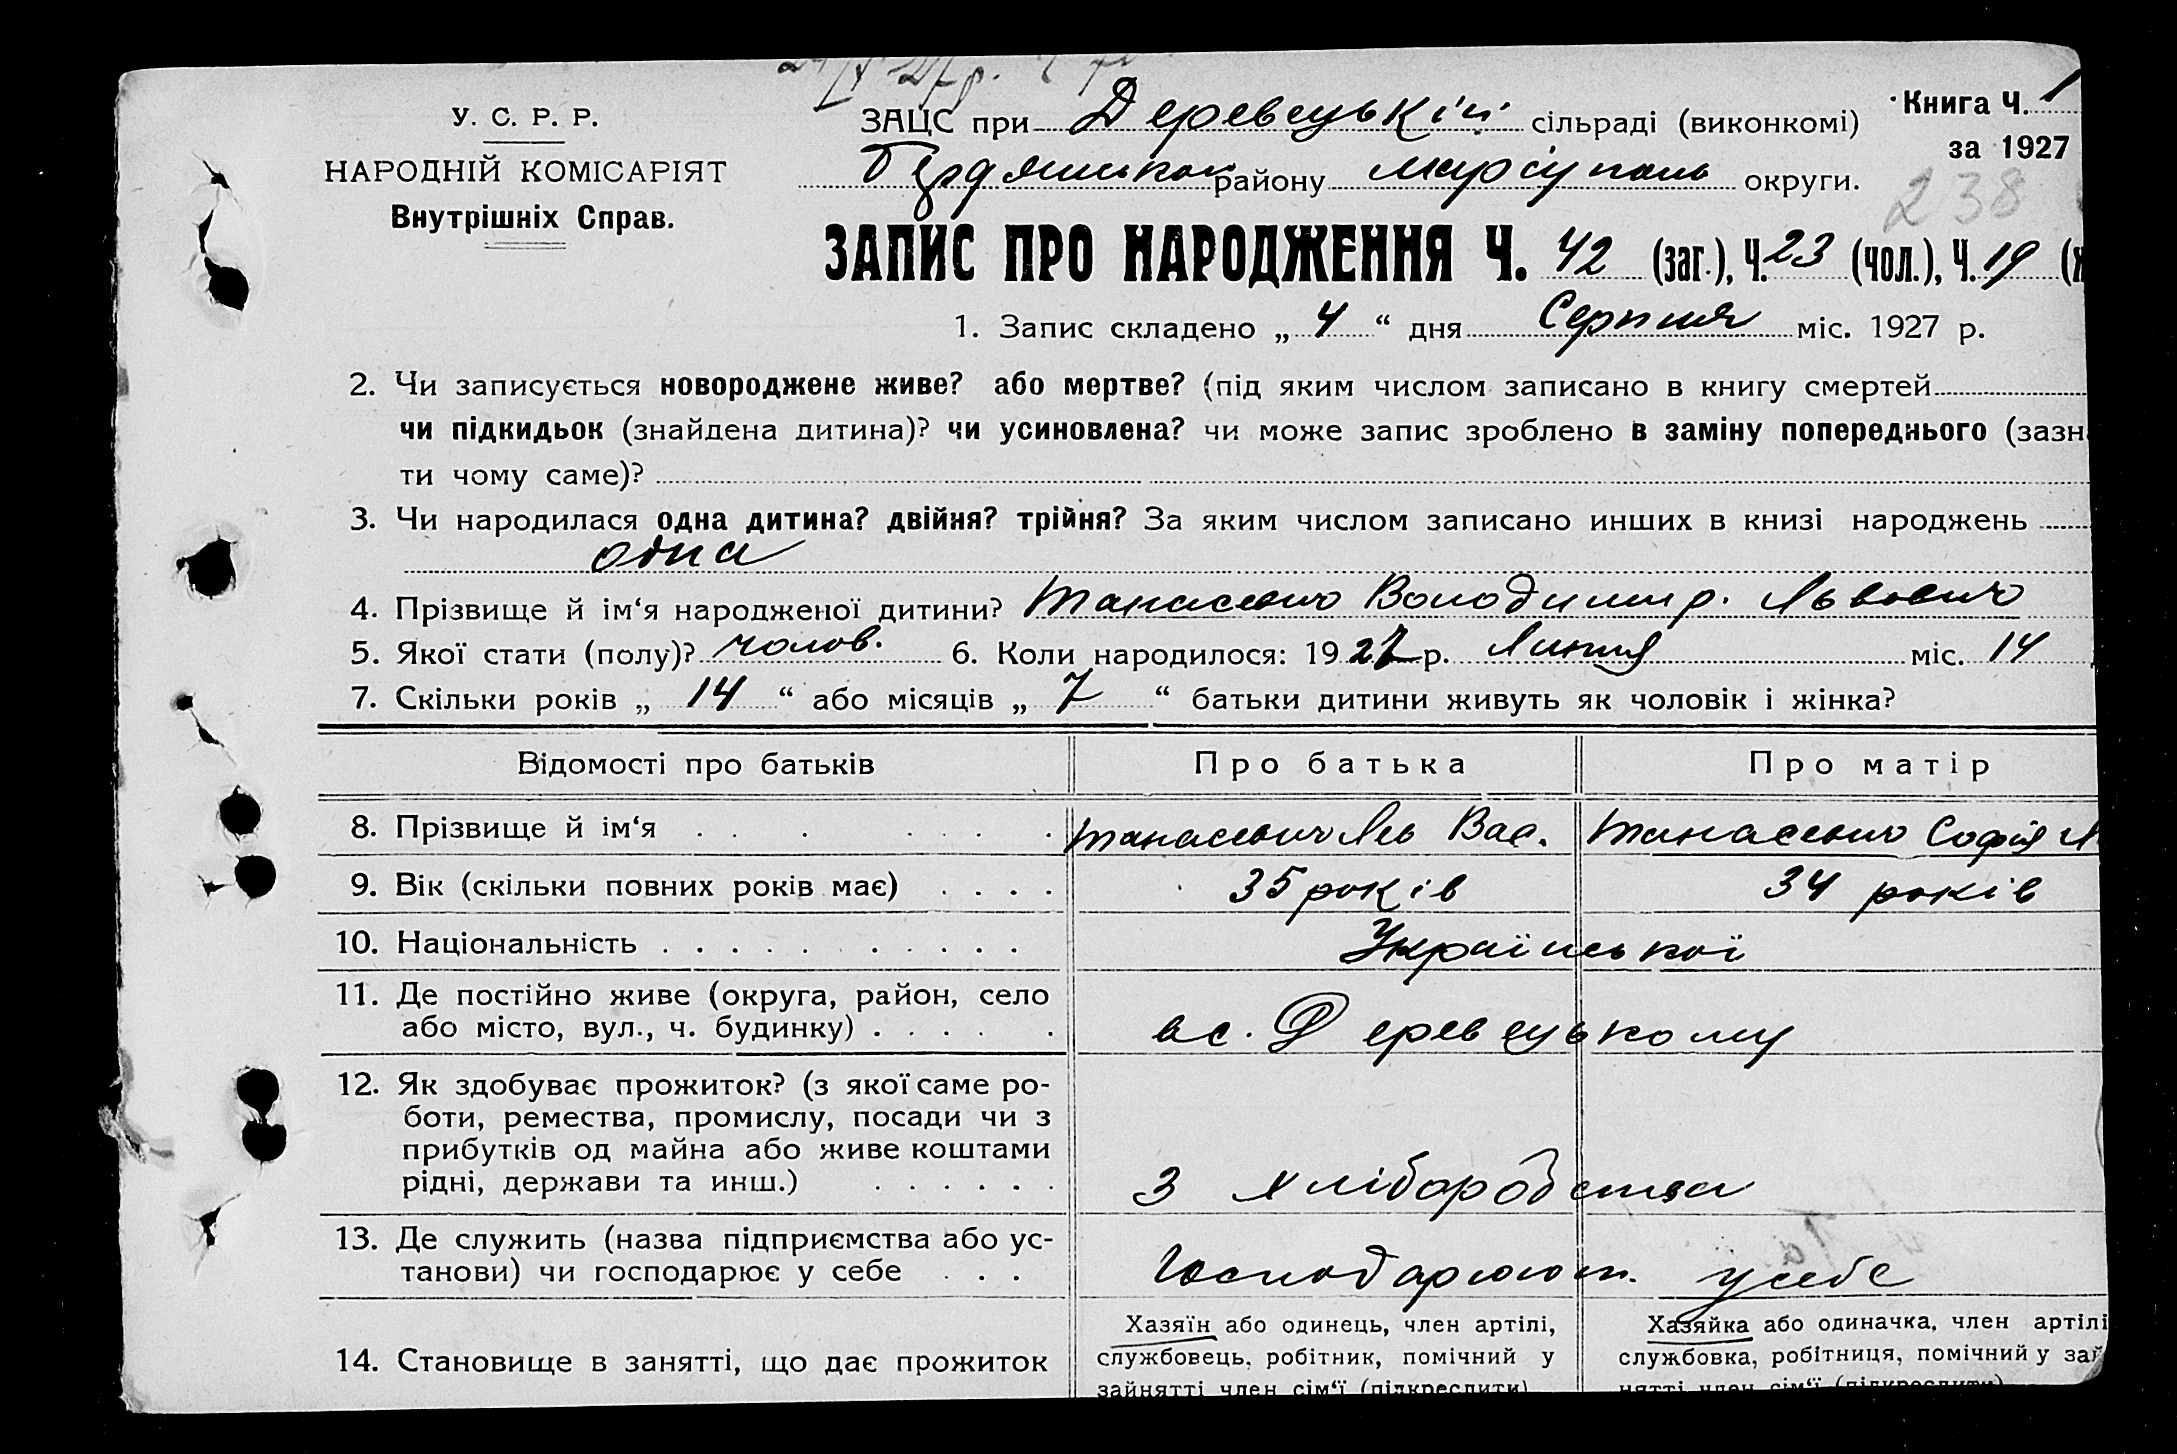 У. С. Р. Р.
НАРОДНІЙ КОМІСАРІЯТ
Внутрішніх Справ.
ЗАЦС при Деревецькій сільраді (виконкомі)
Книга Ч. 1
за 1927
району Маріупаль округи.
238
ЗАПИС ПРО НАРОДЖЕННЯ Ч. 42 (заг.), Ч. 23 (чол.), Ч. 19
1. Запис складено „ 4 “ дня Серпня міс. 1927 р.
2. Чи записується новороджене живе? або мертве? (під яким числом записано в книгу смертей
чи підкидьок (знайдена дитина)? чи усиновлена? чи може запис зроблено в заміну попереднього (зазн
ти чому саме)?
3. Чи народилася одна дитина? двійня? трійня? За яким числом записано инших в книзі народжень
одна
4. Прізвище й ім‘я народженої дитини? Танасевич Володимир. Львович
5. Якої стати (полу)? чолов. 6. Коли народилося: 19 27 р. Липня міс. 14
7. Скільки років „ 14 “ або місяців „ 7 “ батьки дитини живуть як чоловік і жінка?
Відомості про батьків Про батька Про матір
8. Прізвище й ім‘я Танасевич Лев Вас. Танасевич Софія
9. Вік (скільки повних років має) 35 років 34 років
10. Національність Української
11. Де постійно живе (округа, район, село
або місто, вул., ч. будинку) в с. Деревецькому
12. Як здобуває прожиток? (з якої саме ро-
боти, ремества, промислу, посади чи з
прибутків од майна або живе коштами
рідні, держави та инш.) З хліборобства
13. Де служить (назва підприємства або ус-
танови) чи господарює у себе Господарюют. у себе
14. Становище в занятті, що дає прожиток
Хазяїн або одинець, член артілі,
службовець, робітник, помічний у
зайнятті член сім‘ї (підкреслити)
Хазяйка або одиначка, член артілі
службовка, робітниця, помічний у зай
нятті член сім‘ї (підкреслити)